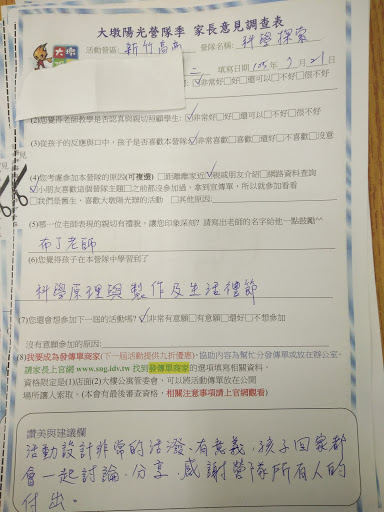 大墩陽光營隊季 家長意見調查表
大墩
活動營區: 新竹高商 營隊名稱: 科學探索
填寫日期 105年7月21日
☑非常好□好□還可以□不好□很不好
(2)您覺得老師教學是否認真與親切照顧學生: ☑非常好□好□還可以□不好□很不好
(3)從孩子的反應與口中，孩子是否喜歡本營隊☑非常喜歡□喜歡□還好□不喜歡□沒意
(4)您考慮參加本營隊的原因(可複選) □距離離家近☑親戚朋友介紹□網路資料查詢
☑小朋友喜歡這個營隊主題□之前都沒參加過，拿到宣傳單，所以就參加看看
□我們是舊生，喜歡大墩陽光球的活動 □其他原因:
(5)哪一位老師表現的親切有禮貌，讓您印象深刻? 請寫出老師的名字給他一點鼓勵^^
布丁老師
(6)您覺得孩子在本營隊中學習到了
科學原理與製作及生活禮節
(7)您還會想參加下一屆的活動嗎? ☑非常有意願□有意願□還好□不想參加
沒有意願參加的原因:
(8)我要成為發傳單商家(下一屆活動提供九折優惠)，協助內容為幫忙分發傳單或放在辦公室。
請家長上官網 www.sng.idv.tw 找到發傳單商家的選項填寫相關資料。
資格限定是(1)店面(2)大樓公寓管委會，可以將活動傳單放在公開
場所讓人索取。(本會有最後審查資格，相關注意事項請上官網觀看)
讚美與建議欄
活動設計非常的活潑、有意義，孩子回家都
會一起討論、分享，感謝營隊所有人的
付出。